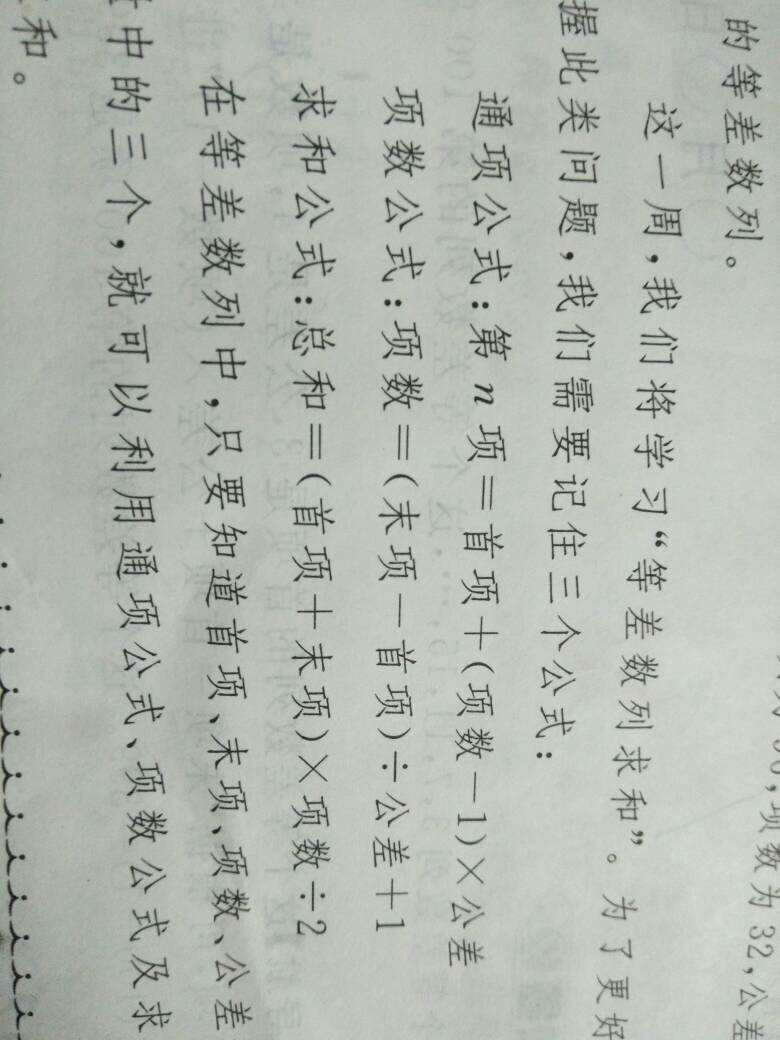 项数为32,公差
的等差数列。
这一周,我们将学习“等差数列求和”。为了更好
握此类问题,我们需要记住三个公式:
通项公式:第n项=首项+(项数-1)×公差
项数公式:项数=(末项-首项)÷公差+1
求和公式:总和=(首项+末项)×项数÷2
在等差数列中,只要知道首项、末项、项数、公差
中的三个,就可以利用通项公式、项数公式及求
和。